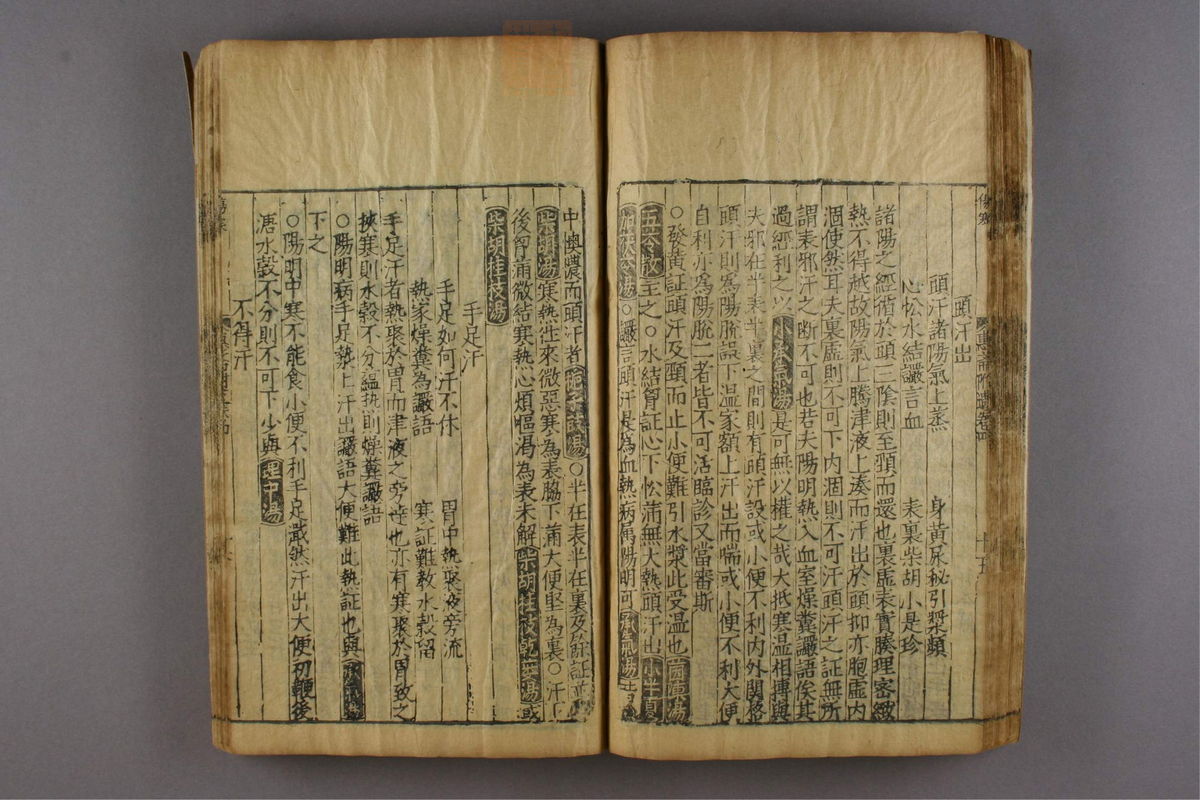 頭汗出
頭汗諸陽氣上蒸　身黃尿秘引漿頻
心忪水結讝言血　表裏柴胡小是珍
諸陽之經循於頭三陰則至頸而還也裏虛表實腠理密緻
熱不得越故陽氣上騰津液上湊而汗出於頭抑亦胞虛內
涸使然耳夫裏虛則不可下內涸則不可汗頭汗之証無所
謂表邪汗之斷不可也若夫陽明熱入血室燥糞讝語俟其
過經利之以小承氣湯是可無以權之哉大抵寒溫相搏與
夫邪在半表半裏之間則有頭汗設或小便不利內外関格
頭汗則為陽脫誤下湿家額上汗出而喘或小便不利大便
自利亦為陽脫二者皆不可活臨診又當審斯
○發黃証頭汗及頸而止小便難引水漿此受温也茵蔯湯
五苓散主之○水結胷証心下忪滿無大熱頭汗出小半夏
加茯苓湯○讝言頭汗是為血熱病傷陽明可承氣湯
中懊憹而頭汗者梔子豉湯○半在表半在裏及餘証並
柴胡湯寒熱往來微惡寒為表脇下滿大便堅為裏○汗下
後胷滿微結寒熱心煩嘔渴為表未解柴胡桂枝乾姜湯或
柴胡桂枝湯
手足汗
手足如何汗不休　胃中熱聚液旁流
熱家燥糞為讝語　寒証難教水穀留
手足汗者熱聚於胃而津液之旁達也亦有寒聚於胃致之
挾寒則水穀不分蘊熱則燥糞讝語
○陽明病手足漐漐汗出讝語大便難此熱証也與承氣湯
下之
○陽明中寒不能食小便不利手足濈然汗出大便初鞕後
溏水穀不分則不可下少與理中湯
不得汗